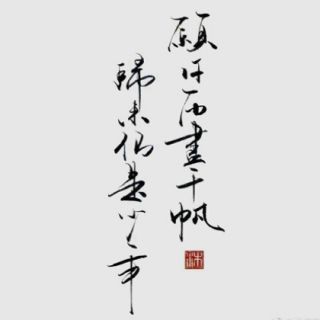 願你历盡千帆
歸来仍是少年